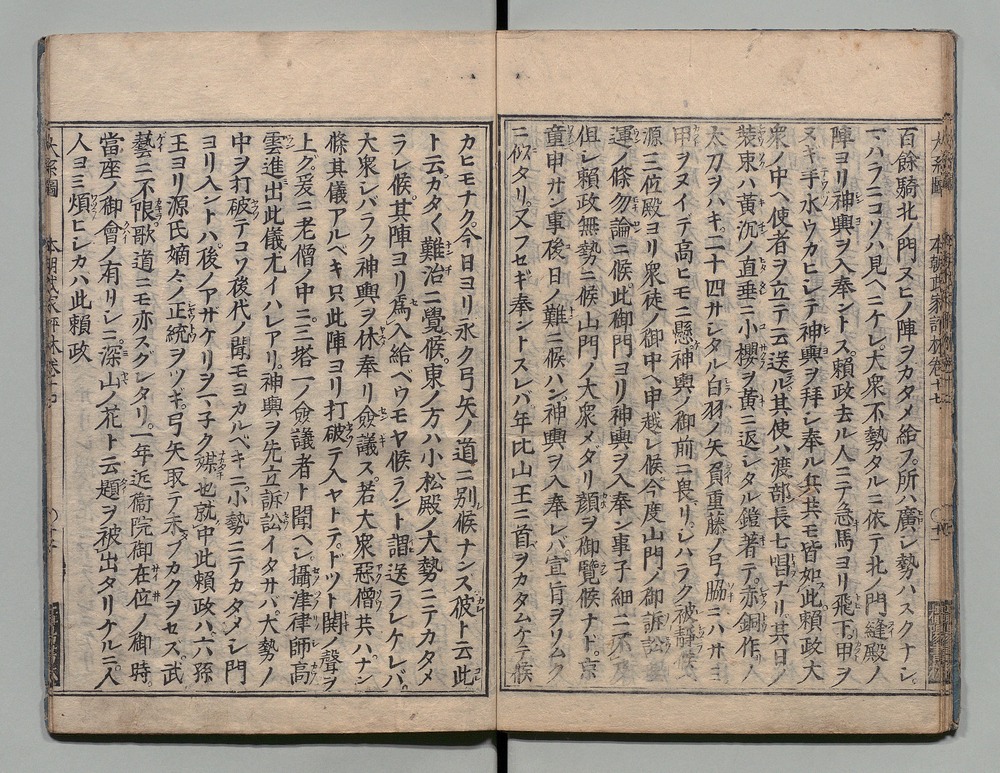 百餘騎北ノ門又ヒノ陣ヲカタメ給フ。所ハ廣シ勢ハスクナシ。
マハラニコソハ見ヘニケレ大衆不勢タルニ依テ北ノ門縫殿ノ
陣ヨリ神輿ヲ入奉ントス。頼政去ル人ニテ急馬ヨリ飛下。甲ヲ
ヌキ手水ウカヒシテ神輿ヲ拜シ奉ル兵共モ皆如此頼政大
衆ノ中ヘ使者ヲ立テ云送ル其使ハ渡部長七唱ナリ其日ノ
装束ハ黄沉ノ直垂ニ小櫻ヲ黄ニ返シタル鎧著テ。赤銅作ノ
太刀ヲハキ。二十四サシタル白羽ノ矢負重藤ノ弓脇ニハサミ
甲ヲヌイデ高ヒモニ懸神輿ノ御前ニ畏リ。シハラク被靜候
源三位殿ヨリ衆徒ノ御中ヘ申越レ候。今度山門ノ御訴訟
運ノ條勿論ニ候。此御門ヨリ神輿ヲ入奉ン事子細ニ不及
但シ頼政無勢ニ候山門ノ大衆メダリ顔ヲ御覽候ナド。京
童申サン事後日ノ難ニ候ハン。神輿ヲ入奉レバ。宣旨ヲソムク
ニ似タリ。又フセギ奉ントスレバ年比山王ニ首ヲカタムケテ候
カヒモナク。今日ヨリ永ク弓矢ノ道ニ別候ナンス彼ト云此
ト云カタく難治ニ覺候。東ノ方ハ小松殿ノ大勢ニテカタメ
ラレ候。其陣ヨリ爲入給ベウモヤ候ラント謂送ラレケレバ。
大衆シバラク神輿ヲ休奉リ僉議ス。若大衆惡僧共ハナン
條其儀アルベキ只此陣ヨリ打破テ入ヤトテ。ドツト䦧聲ヲ
上グ。爰ニ老僧ノ中ニ三塔一ノ僉議者ト聞ヘシ。攝津律師高
雲進出此儀尤イハレアリ。神輿ヲ先立訴訟イタサバ。大勢ノ
中ヲ打破テコソ後代ノ聞モヨカルベキニ。小勢ニテカタメシ門
ヨリ入ントハ。後ノアサケリヲ一子ク媒也就中此頼政ハ六孫
王ヨリ源氏嫡々ノ正統ヲツギ。弓矢取テ未ブカクヲセズ。武
藝ニ不限歌道ニモ亦スグレタリ。一年近衞院御在位ノ御時。
當座ノ御會ノ有リシニ深山ノ花ト云題ヲ被出タリケルニ。人
人ヨミ煩ヒシカハ此頼政